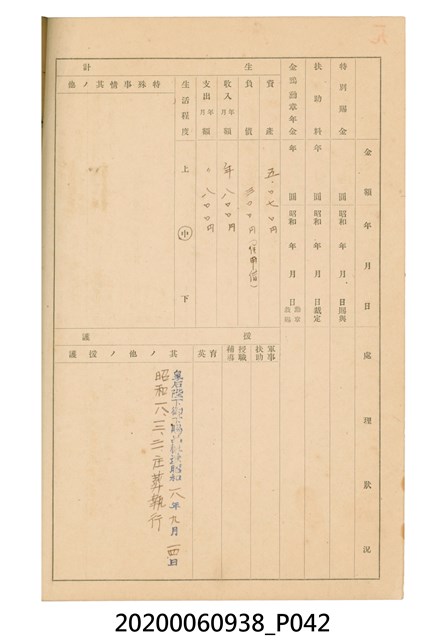 金額 年月日 處理狀況
特別賜金 圓 昭和 年 月 日 賜與
扶助料 年 圓 昭和 年 月 日 裁定
金鵄勳章年金 年 圓 昭和 年 月 日
生計
資產 五、〇七〇円
負債 円
收入 年月額 年 八〇〇円
支出 年月額 〃 八〇〇円
生活程度 上 中 下
特殊事情其ノ他
援護
軍事扶助
授職補導
育英
其ノ他ノ援護
皇后陛下 昭和一八年九月一四日
昭和一八、三、二一 庄葬執行
20200060938_P042